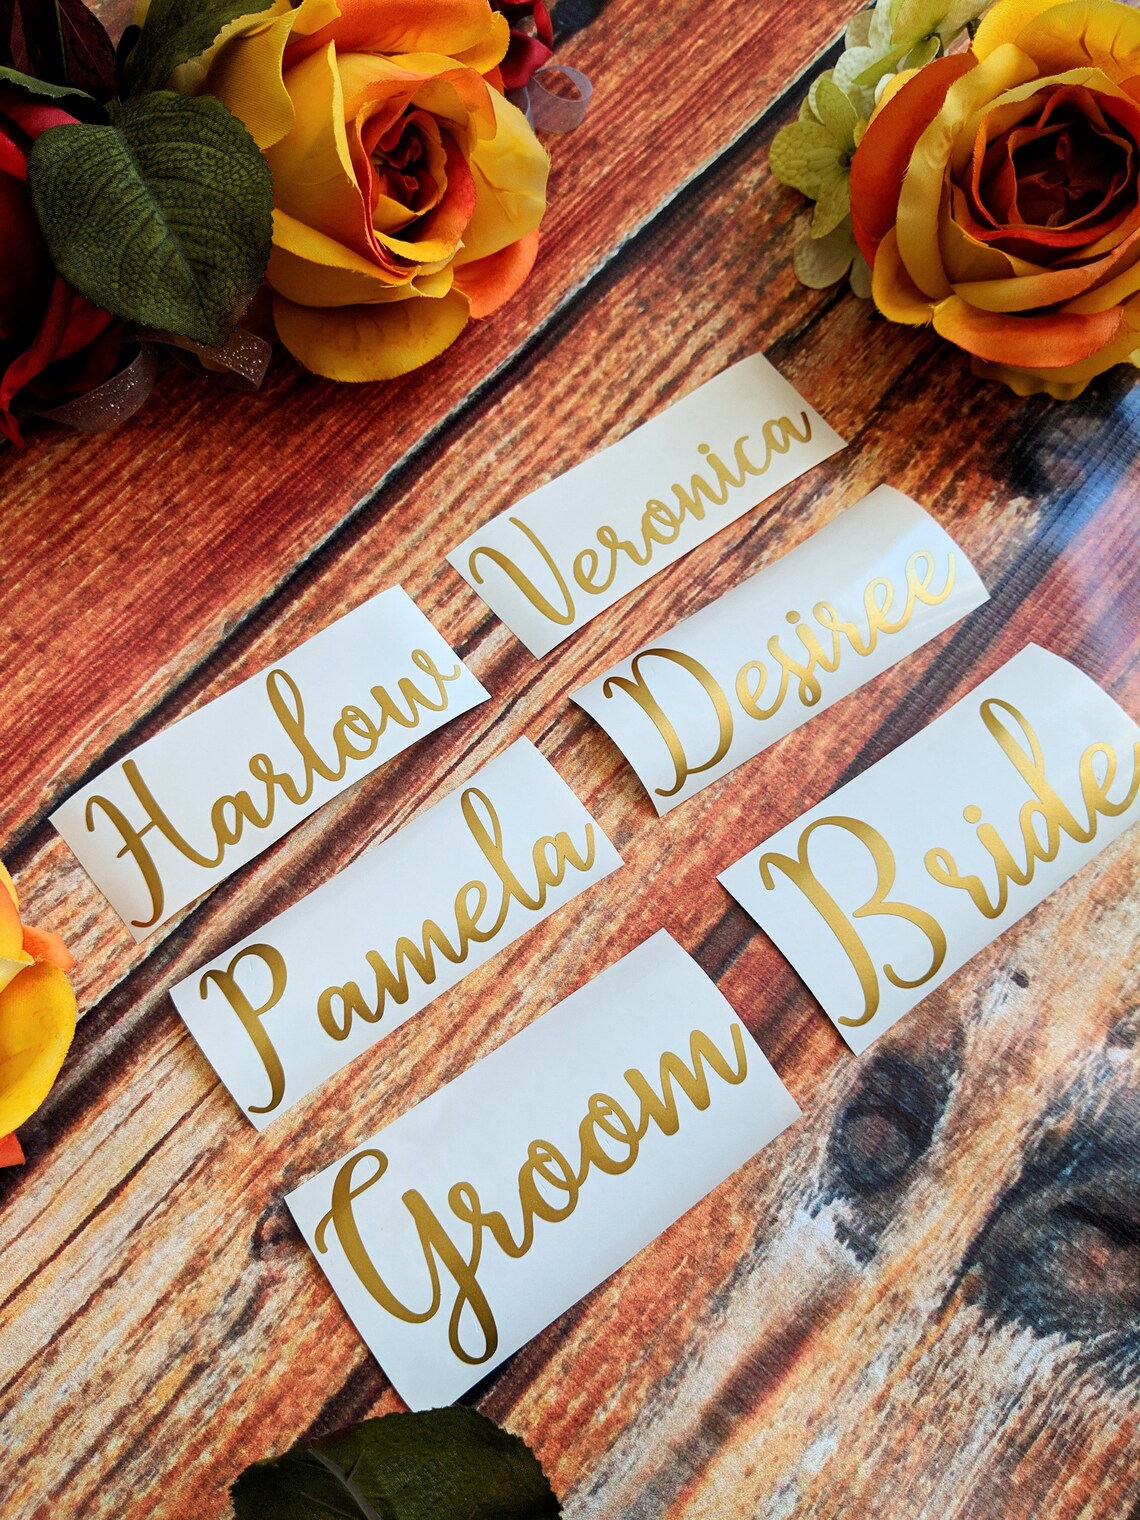 Veronica
Desiree
Bride
Harlow
Pamela
Groom